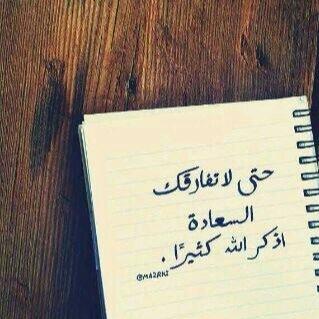 حتى لا تفارقك
السعادة
اذكر الله كثيرًا .